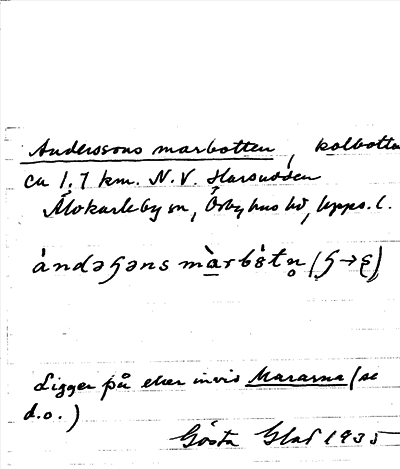 Anderssons marbotten, kolbotte
ca 1,7 km. N.V. Harsudden
Älvkarleby sn, Örbyhus hd, Upps. l.
àndəʂəns màrbòtn̥ (ʂ→ʂ)
Ligger på eller invid Mararna (se
d.o.)
Gösta Glad 1935